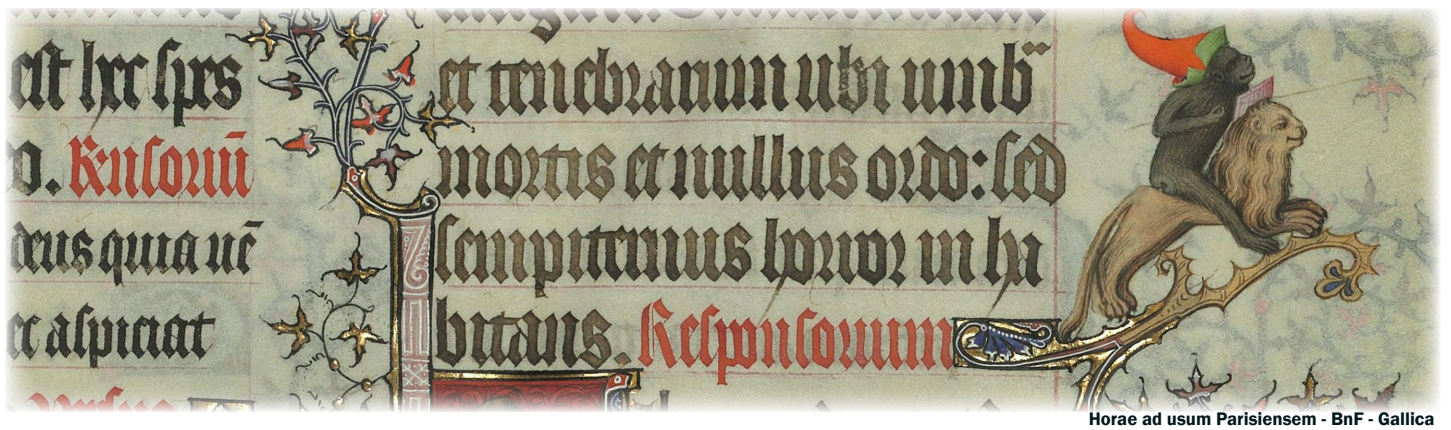 est hec spes
o. R̃nsoriũ
deus quia uẽ
et aspiciat
et tenebrarum ubi umb̃
mortis et nullus ordo: sed
sempiternus horror in ha
bitans. Responsorium
Horae ad usum Parisiensem - BnF - Gallica